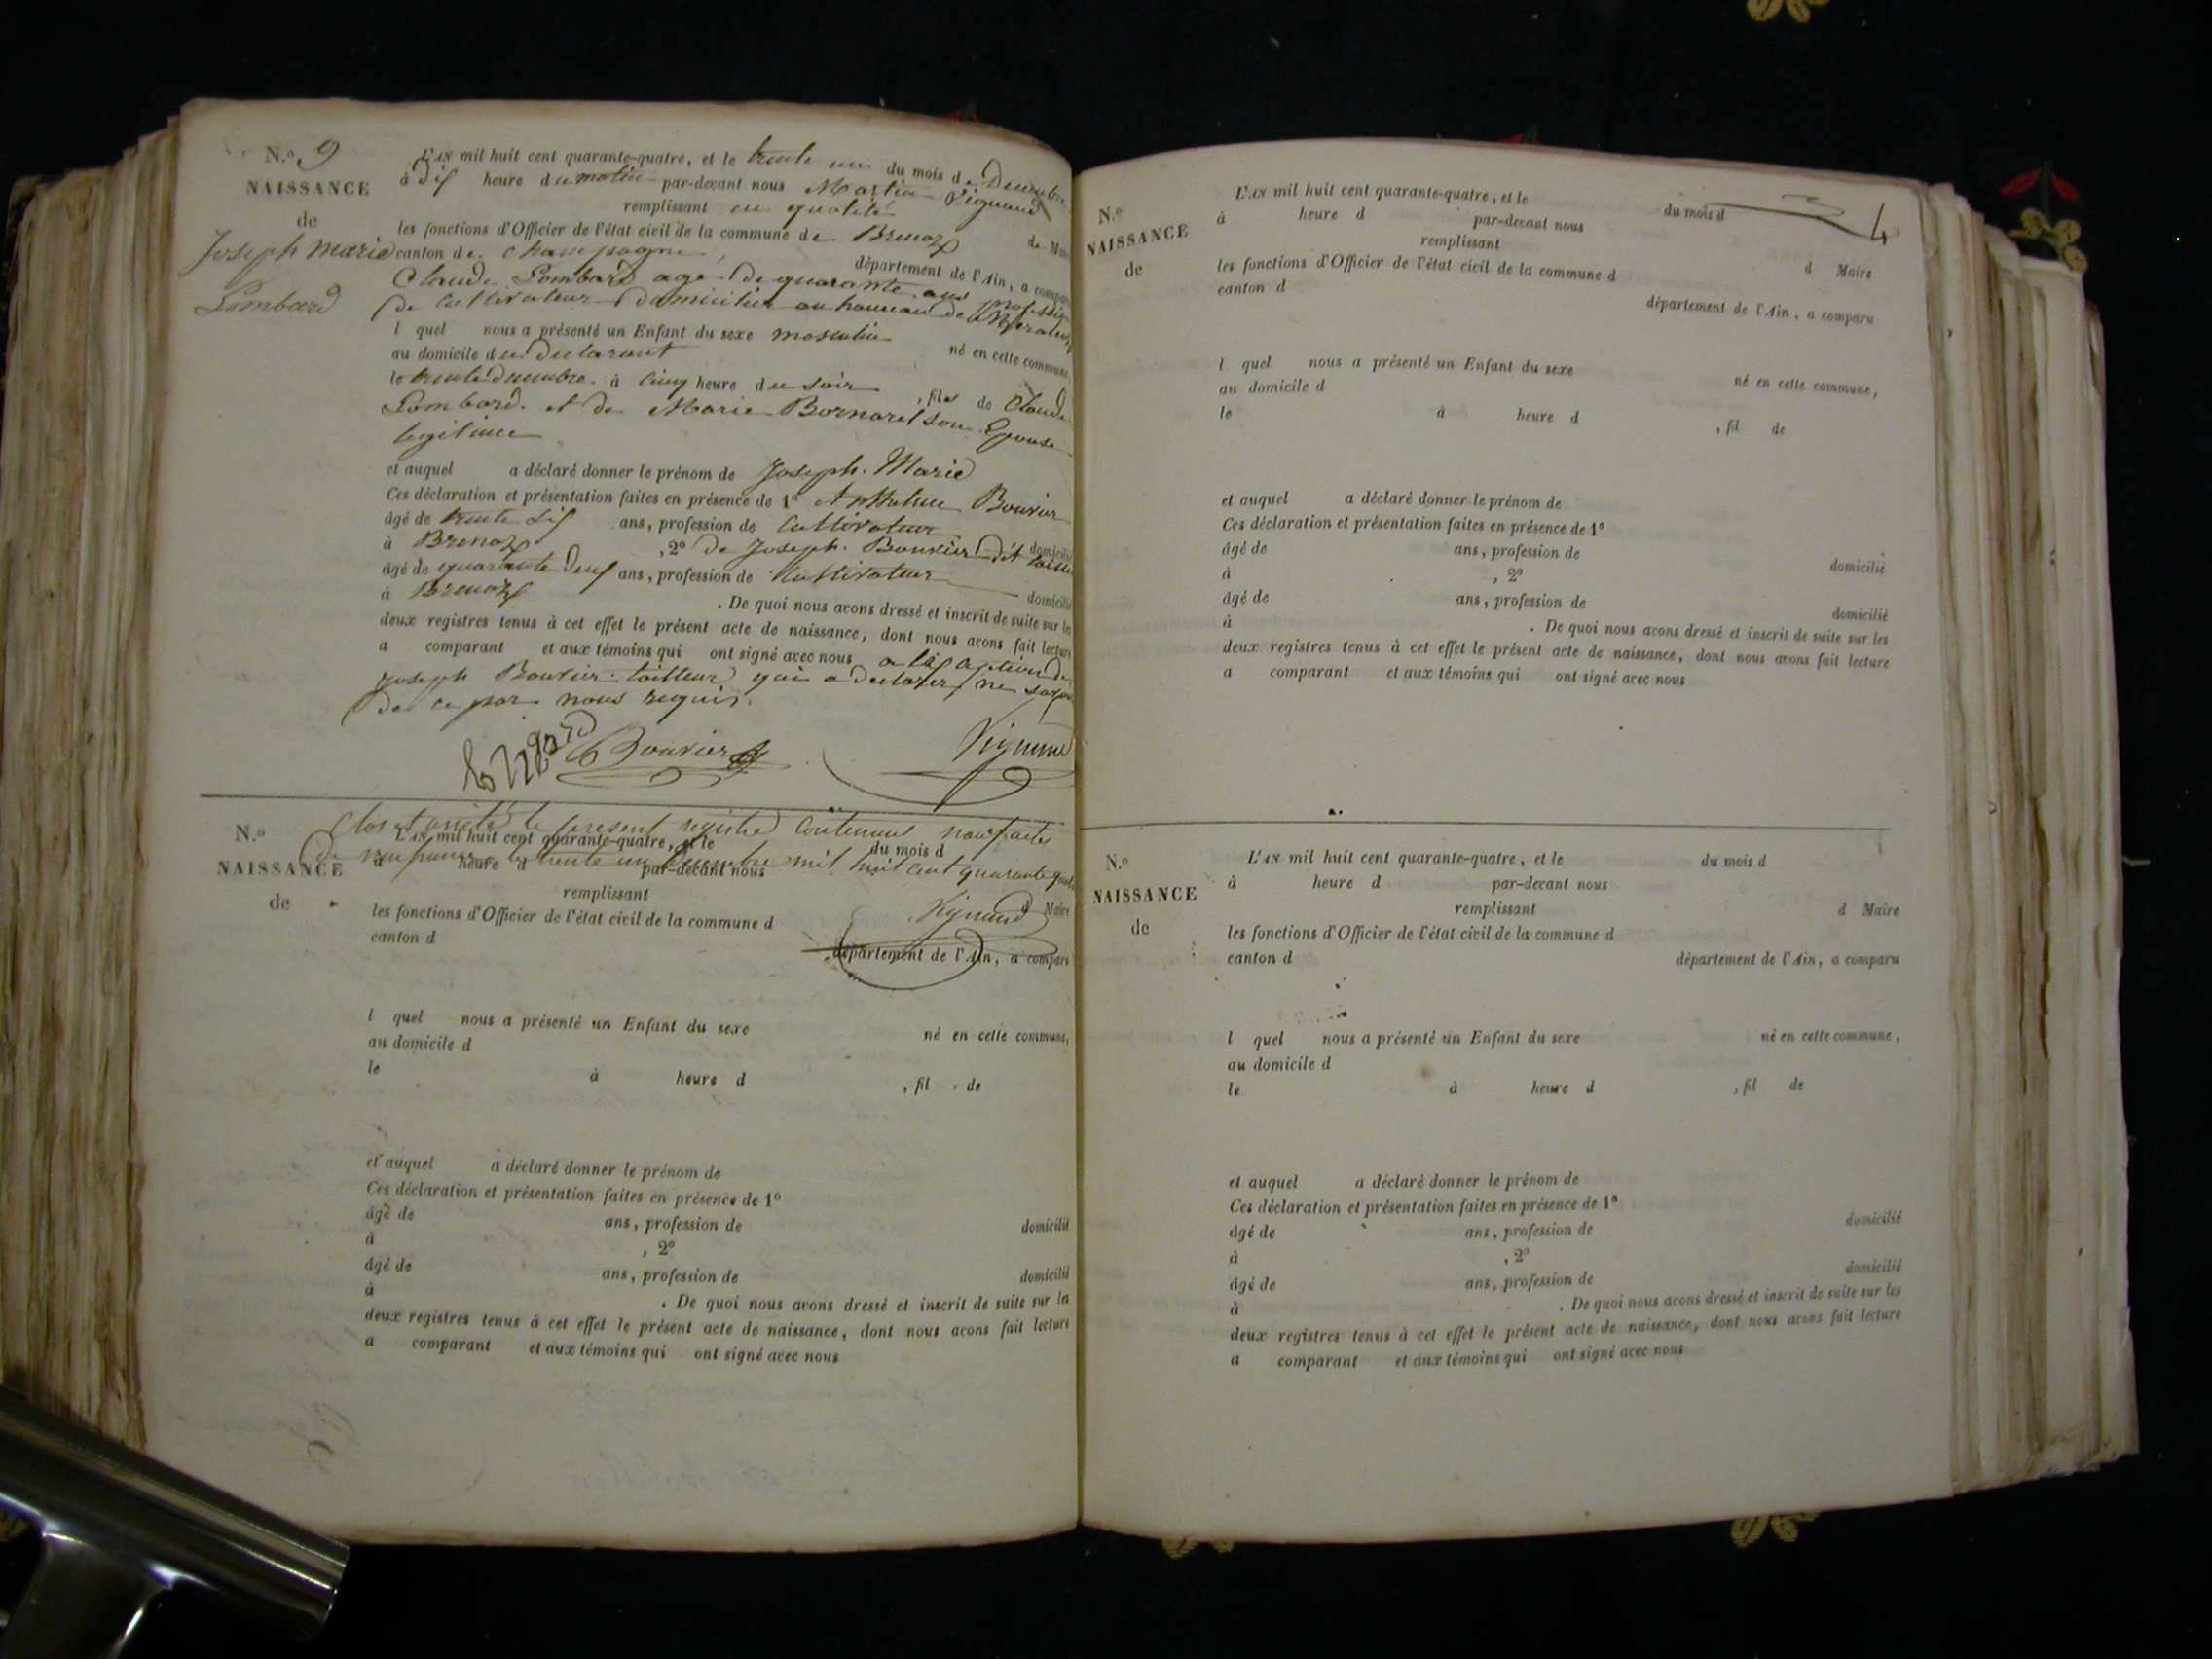 N.º 9
NAISSANCE
de
Joseph Marie
Lombard
L'AN mil huit cent quarante-quatre, et le trente un du mois de Decembre
à dix heure du matin par-devant nous Martin Vignand
remplissant en qualité de Maire
les fonctions d'Officier de l'état civil de la commune de Brenaz
canton de Champagne département de l'Ain, a comparu
Claude Lombard agé de quarante ans profession
de Cultivateur domicilier au hameau de
l quel nous a présenté un Enfant du sexe masculin né en cette commune,
au domicile du declarant
le trente decembre à cinq heure du soir, fils de Claude
Lombard et de Marie Bornarel son Epouse
legitime
et auquel a déclaré donner le prénom de Joseph Marie
Ces déclaration et présentation faites en présence de 1º Anthelme Bouvier
âgé de trente six ans, profession de Cultivateur domicilié
à Brenaz, 2º de Joseph Bouvier dit
âgé de quarante deux ans, profession de Cultivateur domicilié
à Brenaz. De quoi nous avons dressé et inscrit de suite sur les
deux registres tenus à cet effet le présent acte de naissance, dont nous avons fait lecture
a comparant et aux témoins qui ont signé avec nous a l'exception de
Joseph Bouvier tailleur qui a declarer ne savoir
de ce par nous requis.
Bouvier
Vignand
Clos et arreté le present registre contenant neuf actes
de naissances le trente un decembre mil huit cent quarante quatre
Vignand
N.º
NAISSANCE
de
L'AN mil huit cent quarante-quatre, et le du mois d
à heure d par-devant nous
remplissant Maire
les fonctions d'Officier de l'état civil de la commune d
canton d département de l'Ain, a comparu
l quel nous a présenté un Enfant du sexe né en cette commune,
au domicile d
le à heure d , fil de
et auquel a déclaré donner le prénom de
Ces déclaration et présentation faites en présence de 1º
âgé de ans, profession de domicilié
à , 2º
âgé de ans, profession de domicilié
à . De quoi nous avons dressé et inscrit de suite sur les
deux registres tenus à cet effet le présent acte de naissance, dont nous avons fait lecture
a comparant et aux témoins qui ont signé avec nous
4
N.º
NAISSANCE
de
L'AN mil huit cent quarante-quatre, et le du mois d
à heure d par-devant nous
remplissant d Maire
les fonctions d'Officier de l'état civil de la commune d
canton d département de l'Ain, a comparu
l quel nous a présenté un Enfant du sexe né en cette commune,
au domicile d
le à heure d , fil de
et auquel a déclaré donner le prénom de
Ces déclaration et présentation faites en présence de 1º
âgé de ans, profession de domicilié
à , 2º
âgé de ans, profession de domicilié
à . De quoi nous avons dressé et inscrit de suite sur les
deux registres tenus à cet effet le présent acte de naissance, dont nous avons fait lecture
a comparant et aux témoins qui ont signé avec nous
N.º
NAISSANCE
de
L'AN mil huit cent quarante-quatre, et le du mois d
à heure d par-devant nous
remplissant d Maire
les fonctions d'Officier de l'état civil de la commune d
canton d département de l'Ain, a comparu
l quel nous a présenté un Enfant du sexe né en cette commune,
au domicile d
le à heure d , fil de
et auquel a déclaré donner le prénom de
Ces déclaration et présentation faites en présence de 1º
âgé de ans, profession de domicilié
à , 2º
âgé de ans, profession de domicilié
à . De quoi nous avons dressé et inscrit de suite sur les
deux registres tenus à cet effet le présent acte de naissance, dont nous avons fait lecture
a comparant et aux témoins qui ont signé avec nous